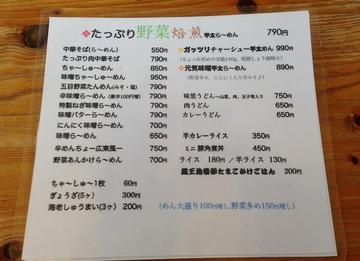 たっぷり野菜焙煎平太ら〜めん 790円
中華そば(ら〜めん) 550円
たっぷり肉中華そば 790円
ちゃ〜しゅ〜めん 850円
味噌ちゃ〜しゅ〜めん 950円
五目野菜たんめん(みそ・塩) 790円
辛味噌ら〜めん 700円
特製ねぎ味噌ら〜めん 790円
味噌バターら〜めん 790円
にんにく味噌ら〜めん 700円
味噌ら〜めん 650円
辛めんちょ一広東風一 750円
野菜あんかけら〜めん 790円
ちゃ〜しゅ〜1枚 60円
ぎょうざ(5ヶ) 300円
海老しゅうまい(3ヶ) 200円
ガッツリチャーシュー平太めん 990円
元気味噌平太ら〜めん 890円
味噌うどん 750円
肉うどん 650円
カレーうどん 650円
半カレーライス 350円
ミニ豚角煮丼 450円
ライス 180円/半ライス 130円
たまごかけごはん 200円
(めん大盛り100円増し,野菜多め150円増し)